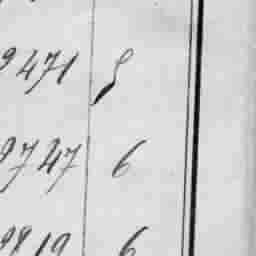 9471 5
9747 6
9819 6